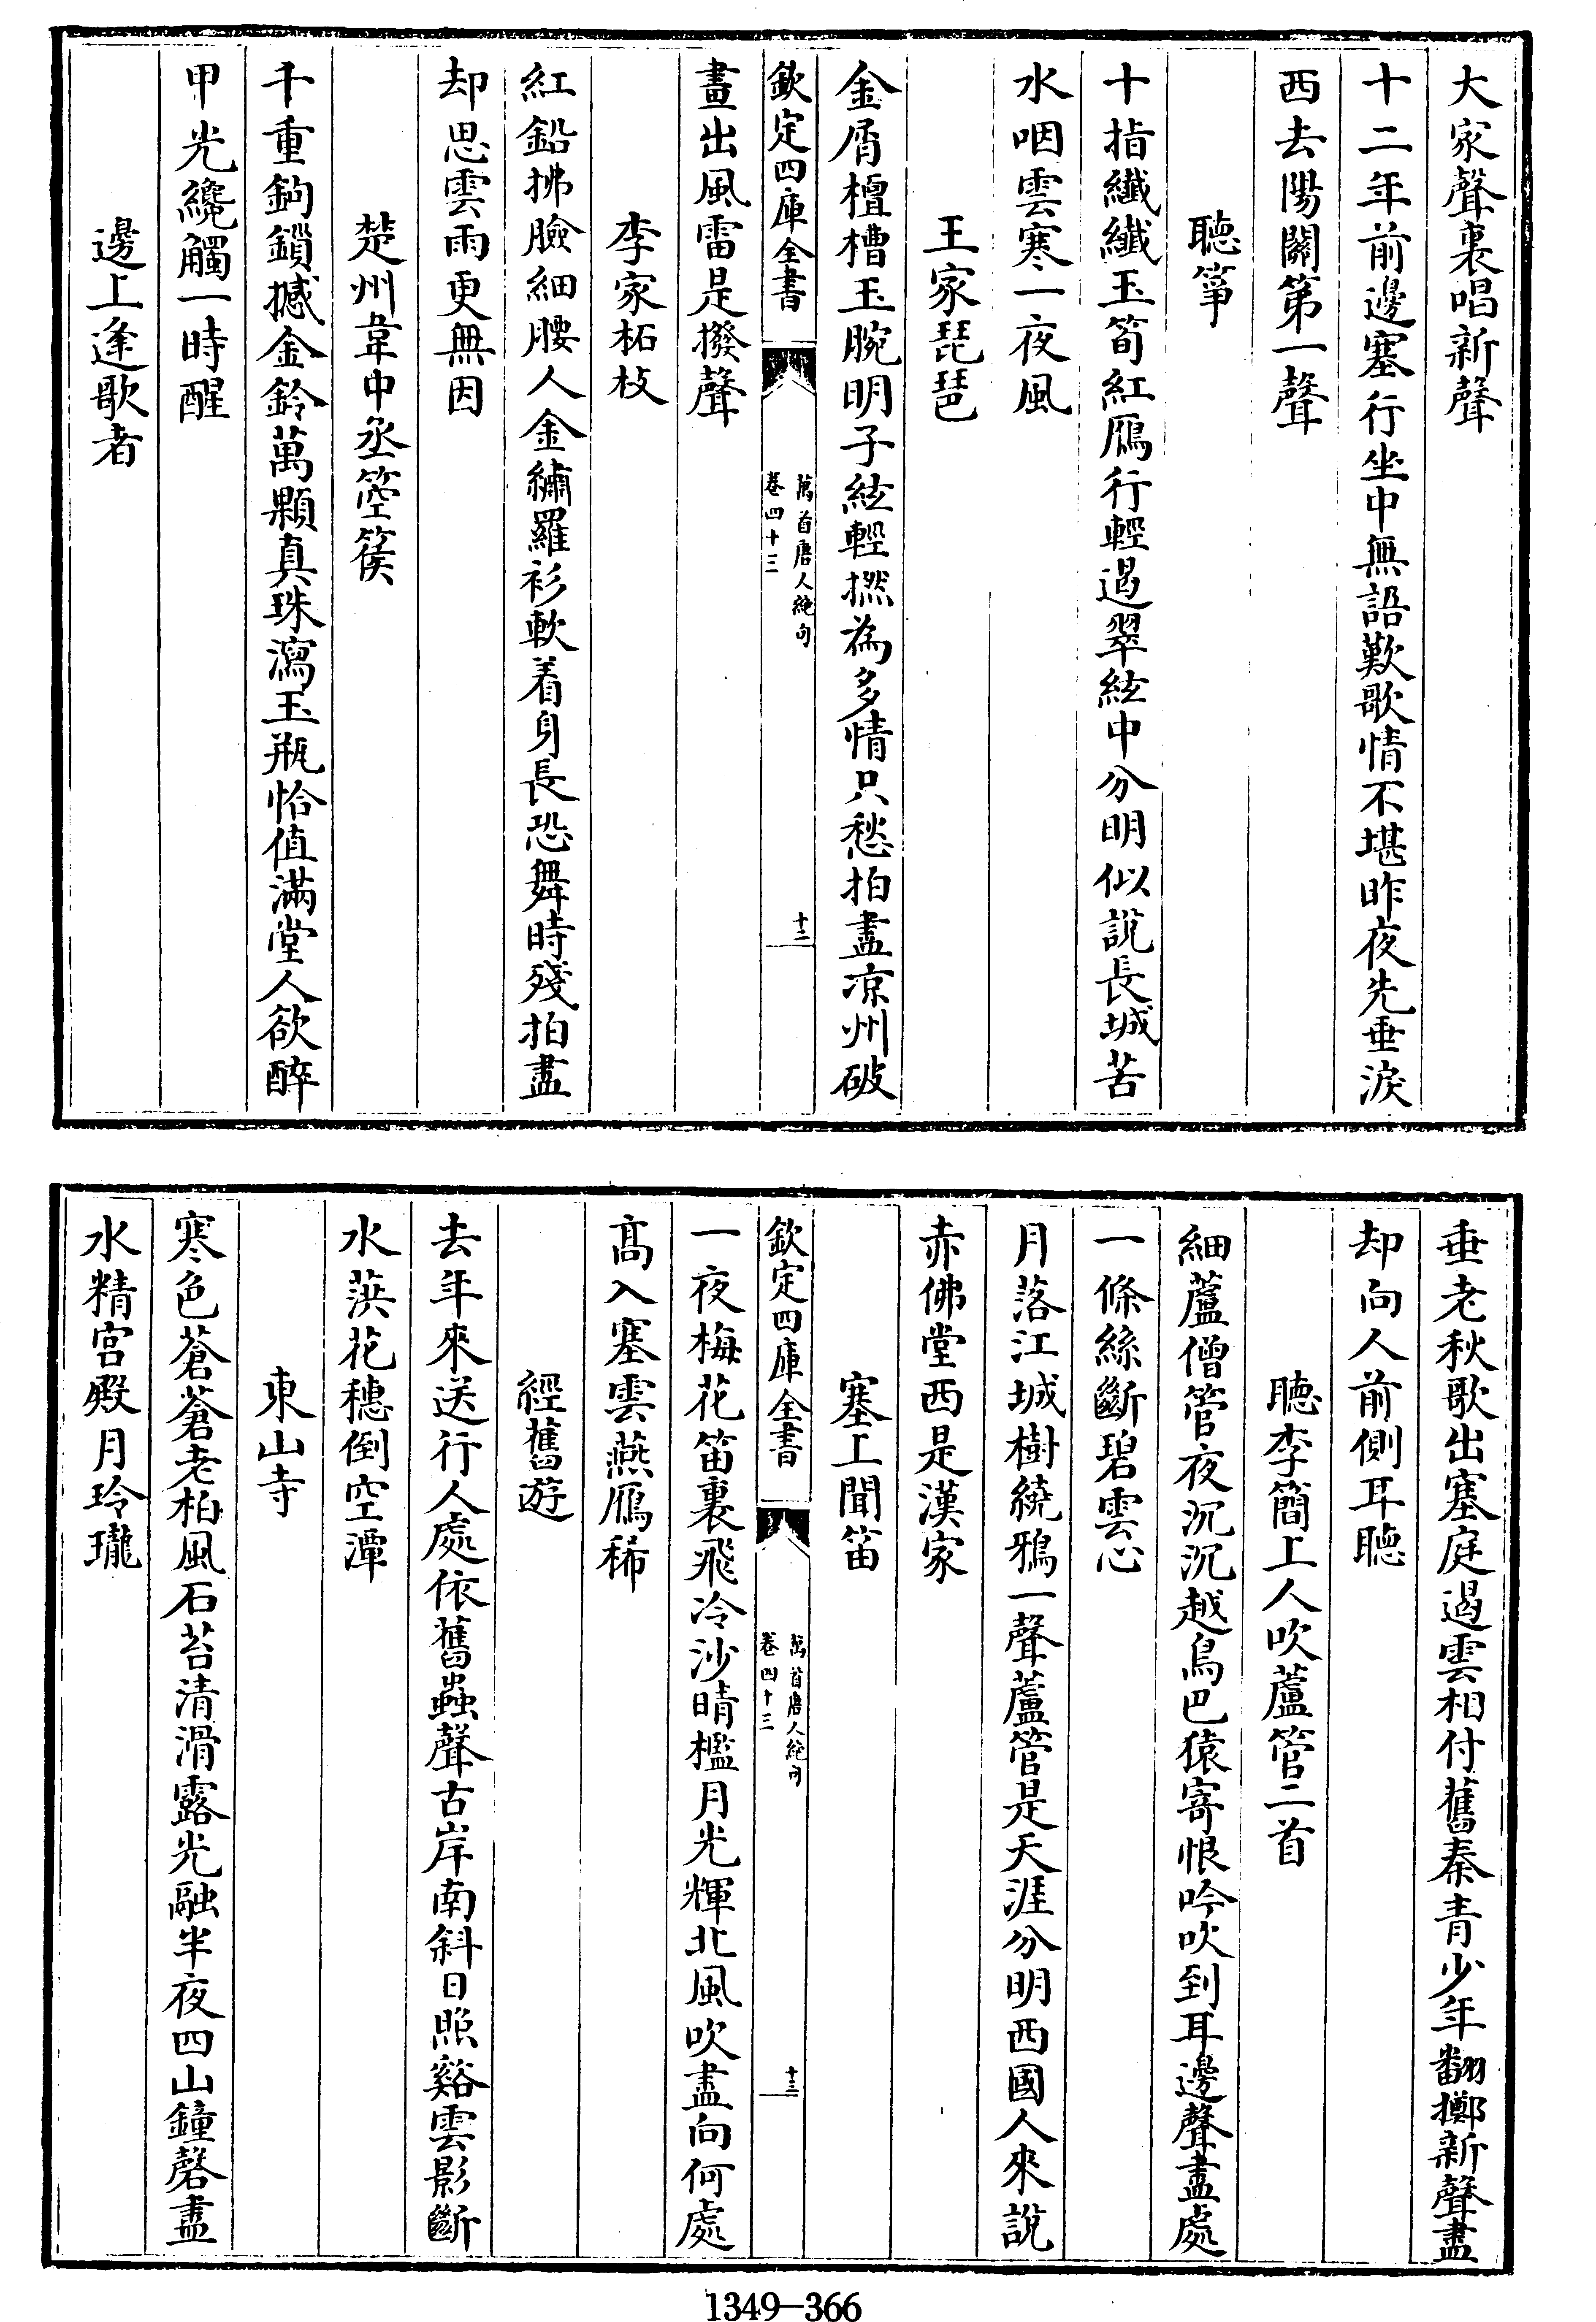 大家聲裏唱新聲
十二年前邊塞行坐中無語歎歌情不堪昨夜先垂淚
西去陽關第一聲
聽箏
十指纖纖玉筍紅鴈行輕遏翠絃中分明似說長城苦
水咽雲寒一夜風
王家琵琶
金屑檀槽玉腕明子絃輕撚為多情只愁拍盡凉州破
欽定四庫全書
萬首唐人絶句
卷四十三
十二
畫出風雷是撥聲
李家柘枝
紅鉛拂臉細腰人金繡羅衫軟着身長恐舞時殘拍盡
却思雲雨更無因
楚州韋中丞箜篌
千重鉤鎖撼金鈴萬顆真珠瀉玉瓶恰值滿堂人欲醉
甲光纔觸一時醒
邊上逢歌者
垂老秋歌出塞庭遏雲相付舊秦青少年翻擲新聲盡
却向人前側耳聽
聽李簡上人吹蘆管二首
細蘆僧管夜沉沉越鳥巴猿寄恨吟吹到耳邊聲盡處
一條絲斷碧雲心
月落江城樹繞鴉一聲蘆管是天涯分明西國人來說
赤佛堂西是漢家
塞上聞笛
欽定四庫全書
萬首唐人絶句
卷四十三
十三
一夜梅花笛裏飛冷沙晴檻月光輝北風吹盡向何處
高入塞雲燕鴈稀
經舊遊
去年來送行人處依舊蟲聲古岸南斜日照谿雲影斷
水葓花穗倒空潭
東山寺
寒色蒼蒼老柏風石苔清滑露光融半夜四山鐘磬盡
水精宮殿月玲瓏
1349-366